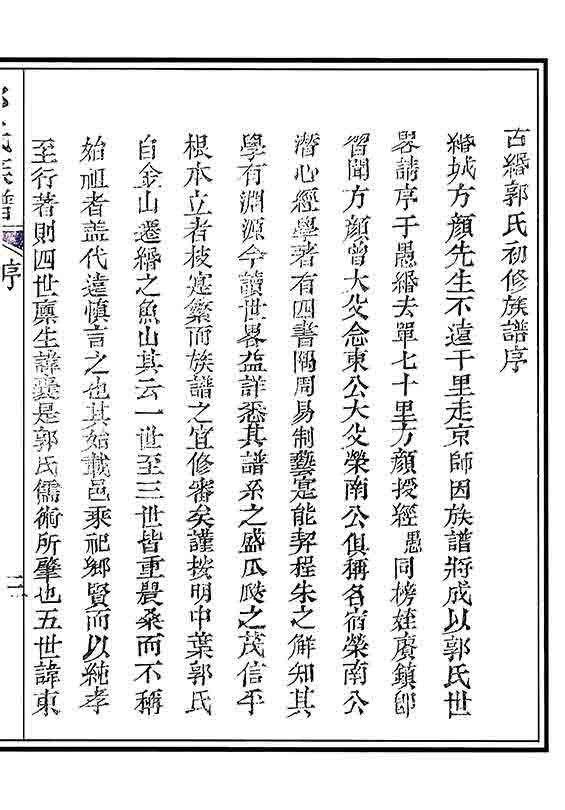 古緡郭氏初修族譜序
緡城方顏先生不遠千里走京師因族譜將成以郭氏世
畧請序于愚緡去單七十里方顏授經愚同榜姪賡鎮即
習聞方顏曾大父念東公大父榮南公俱稱名宿榮南公
潛心經學著有四書隅周易制藝寔能契程朱之解知其
學有淵源今讀世畧益詳悉其譜系之盛瓜瓞之茂信乎
根本立者枝寔繁而族譜之宜修審矣謹按明中葉郭氏
自金山遷緡之魚山其云一世至三世皆重農桑而不稱
始祖者盖代遠慎言之也其始載邑乘祀鄉賢而以純孝
至行著則四世廩生諱囊是郭氏儒術所肇也五世諱東
氏族譜
序
二